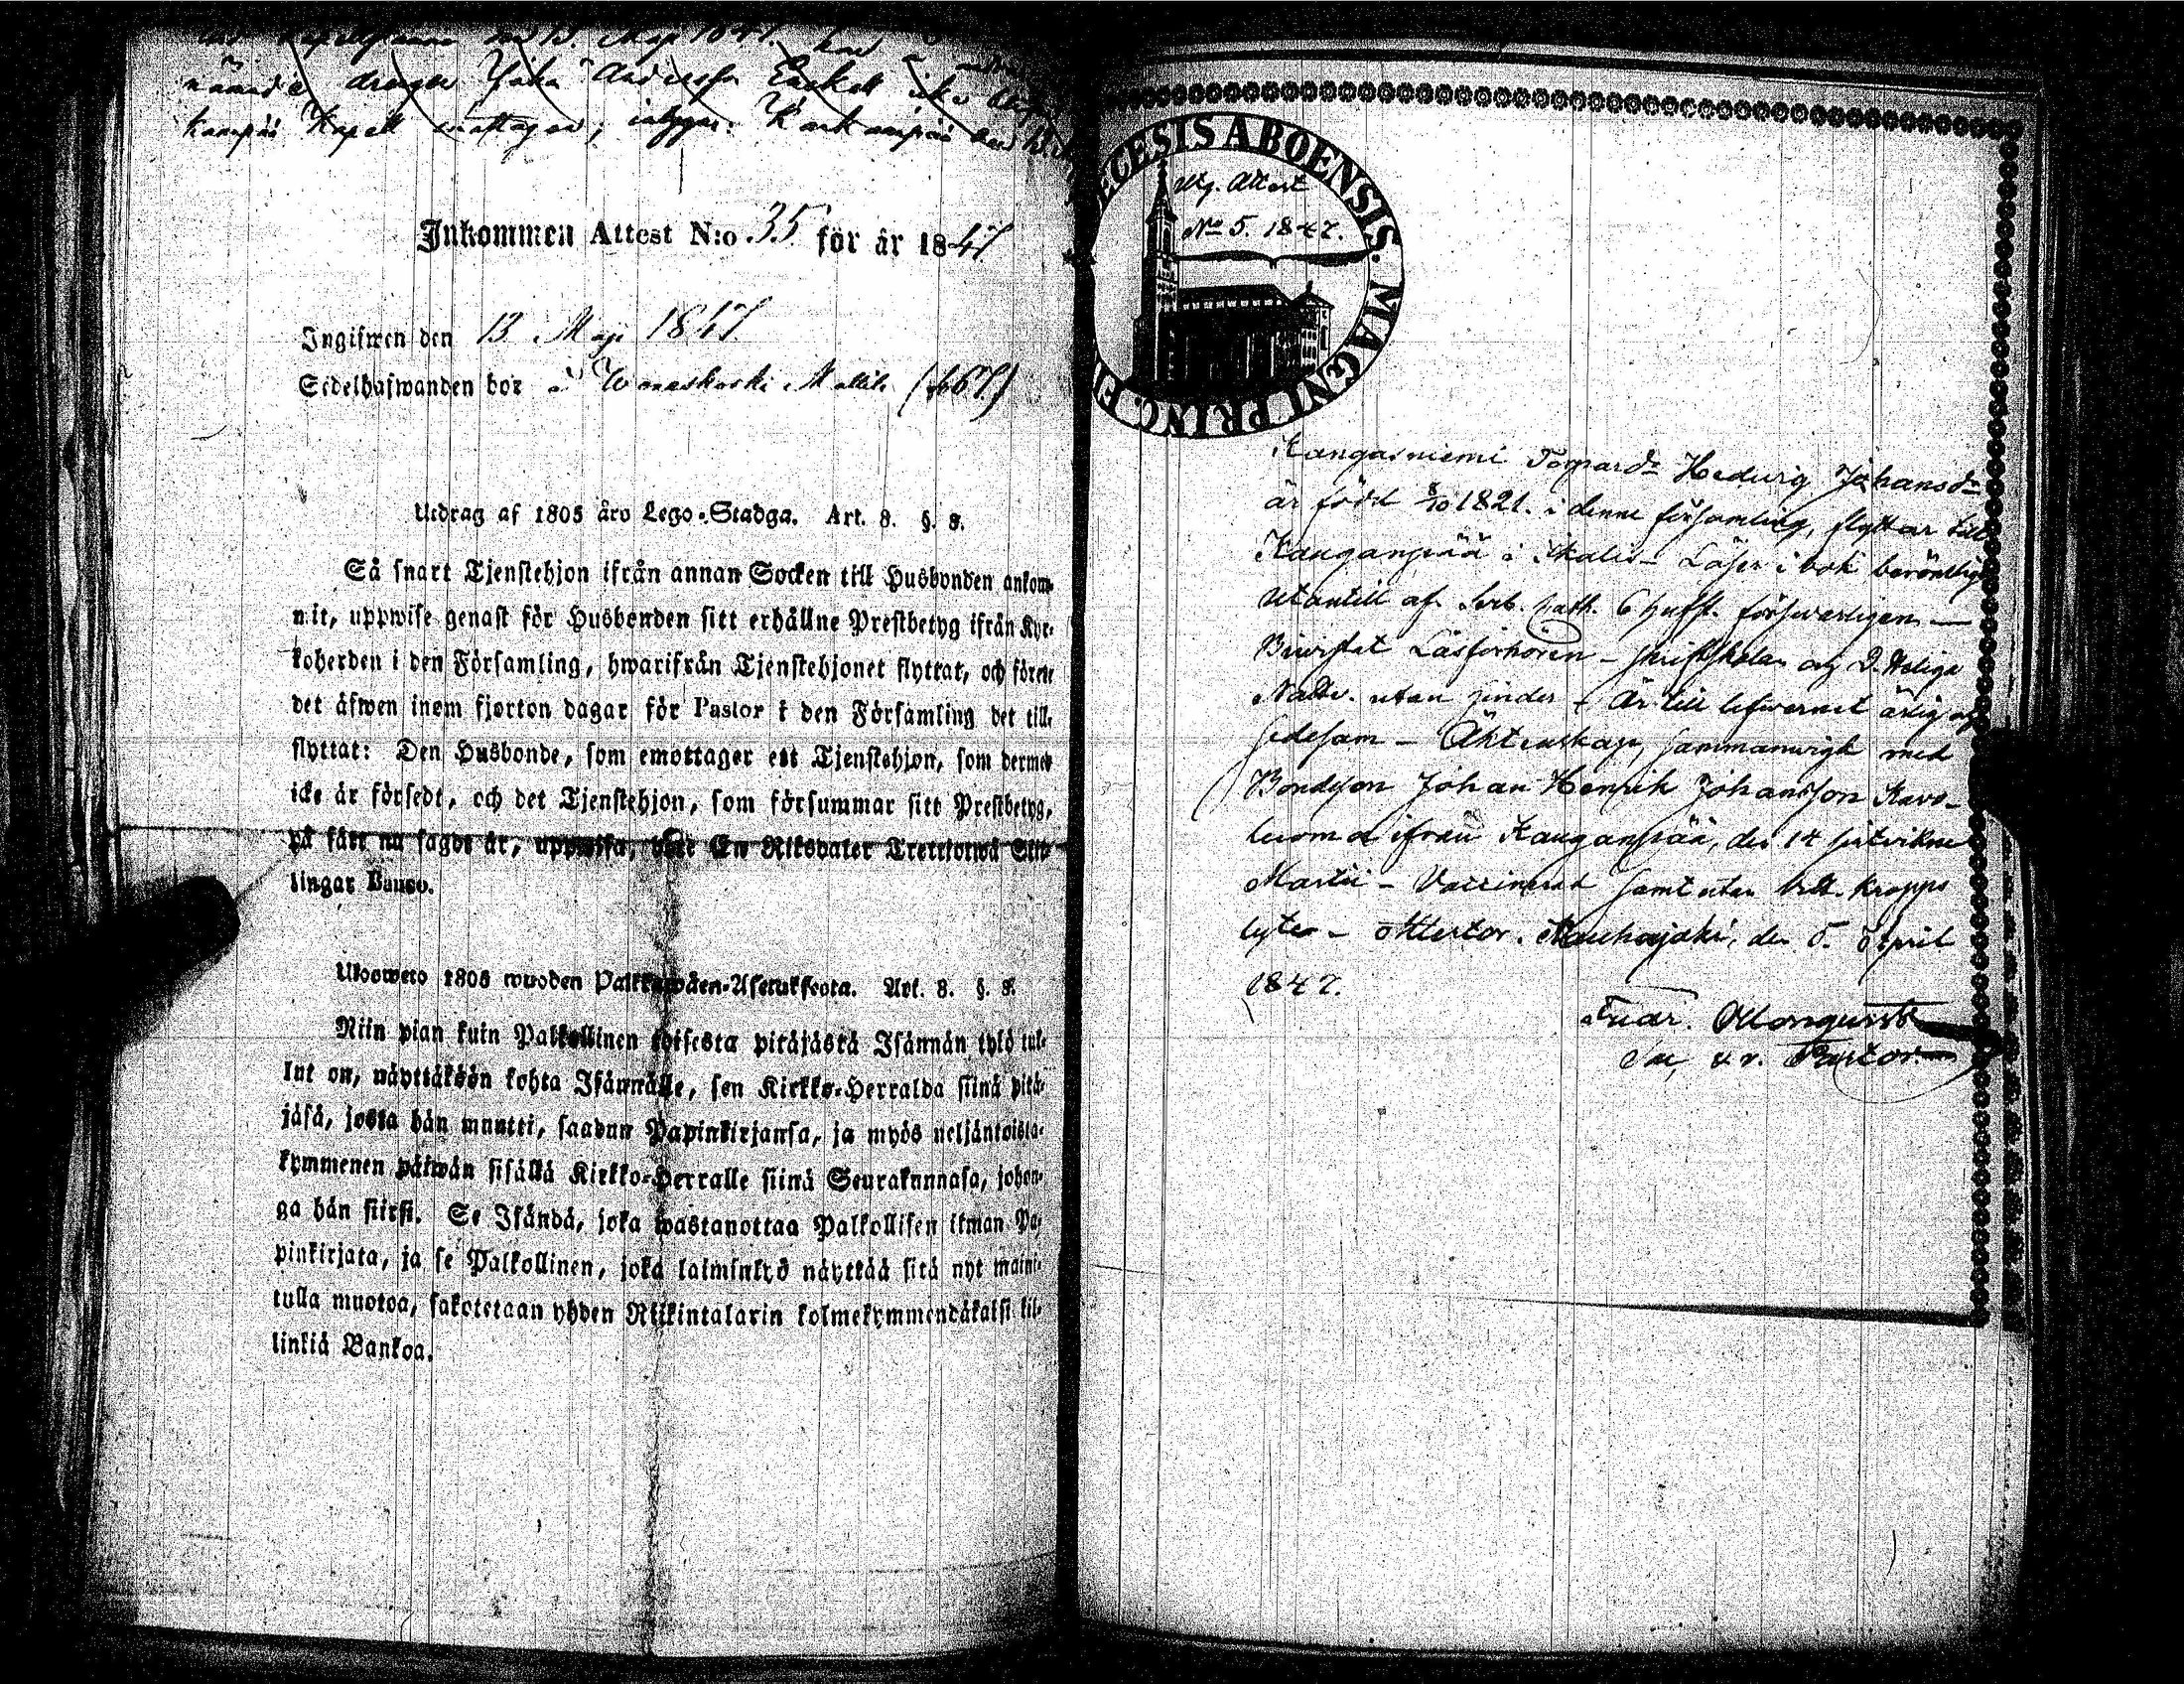 nämnde drängen Johan Andersson Enckell icke
kampää Kapell emottagen; intygar. Karkampää den 13.
Inkommen Attest N:o 35 för år 1847
Ingifwen den 13 Maji 1847.
Sedelhafwanden bor å Wanaskoski Mattila (167.)
Utdrag af 1805 års Lego-Stadga. Art. 8. §. 8.
Så snart Tjenstehjon ifrån annan Socken till Husbonden ankom-
mit, uppwise genast för Husbonden sitt erhållne Prestbetyg ifrån Kyr-
koherden i den Församling, hwarifrån Tjenstehjonet flyttat, och förete
det äfwen inom fjorton dagar för Pastor i den Församling det till-
flyttat: Den Husbonde, som emottager ett Tjenstehjon, som dermed
icke är försedt, och det Tjenstehjon, som försummar sitt Prestbetyg,
på sätt nu sagdt är, uppwisa, böte En Riksdaler Trettiotwå Skil-
lingar Banco.
Ulosweto 1805 wuoden Palkkawäen-Asetuksesta. Art. 8. §. 8.
Niin pian kuin Palkollinen toisesta pitäjästä Isännän tykö tul-
lut on, näyttäköön kohta Isännälle, sen Kirkko-Herralda siinä pitä-
jäsä, josta hän muutti, saadun Papinkirjansa, ja myös neljäntoista-
kymmenen päiwän sisällä Kirkko-Herralle siinä Seurakunnasa, johon-
ga hän siirsi. Se Isändä, joka wastanottaa Palkollisen ilman Pa-
pinkirjata, ja se Palkollinen, joka laiminlyö näyttää sitä nyt maini-
tulla muotoa, sakotetaan yhden Riikintalarin kolmekymmendäkaksi kil-
linkiä Bankoa.
DIOECESIS ABOENSIS. MAGNI PRINC. F
Utg. Attest
No 5. 1847.
Kangasniemi Torpard:r Hedwig Johansd:r
är född 8/10 1821. i denne församling, flyttar till
Kanganpää i Ikalis - Läser i bok berömligt
utantill af Symb. Ath. 6 hufst. förswarligen -
Biwistat Läsförhören - skriftskolan och D. Heliga
Nattv. utan hinder - Är till lefwernet ärlig och
sedesam - Äktenskap, sammanwigd med
Bondeson Johan Henrik Johansson Kawo-
luoma ifrån Kanganpää, den 14 sistvikne
Martii - Vaccinerad samt utan kroppslyte
lyte - Attesterar. Kauhajoki, den 5. April
1847.
Fredr. Monquist
Sac. v. Pastor